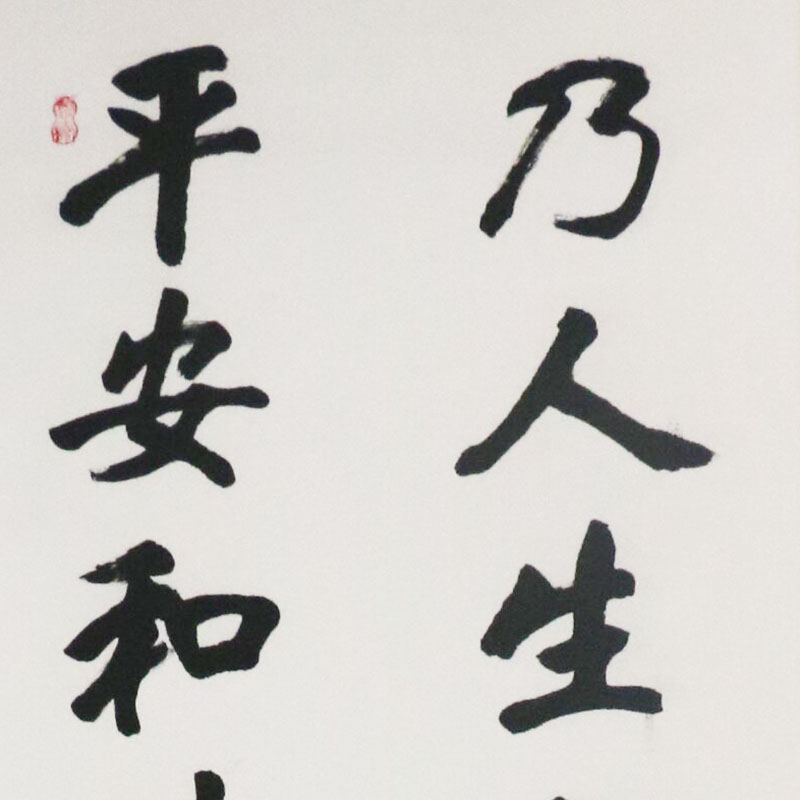 乃人生
平安和